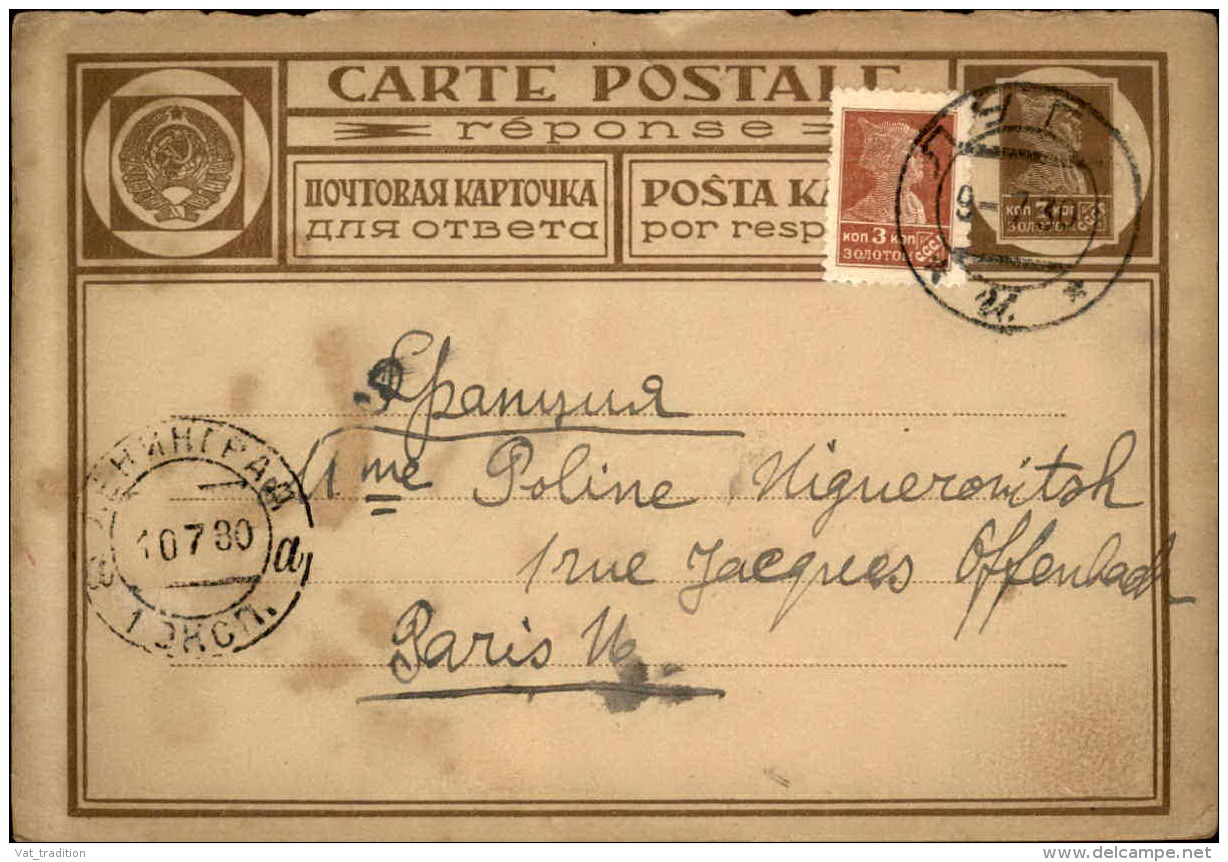 CARTE POSTALE
réponse
ПОЧТОВАЯ КАРТОЧКА
для ответа
POŜTA KA
por resp
КОП 3 КОП
ЗОЛОТОМ
СССР
КОП 3 КОП
ЗОЛОТОМ
СССР
9-7 30
И.
Франция
Mme Poline Niguerovitsh
1 rue Jacques Offenbach
Paris 16.
ЛЕНИНГРАД
10 7 30
а
1 ЭКСП.
Vat_tradition
www.delcampe.net